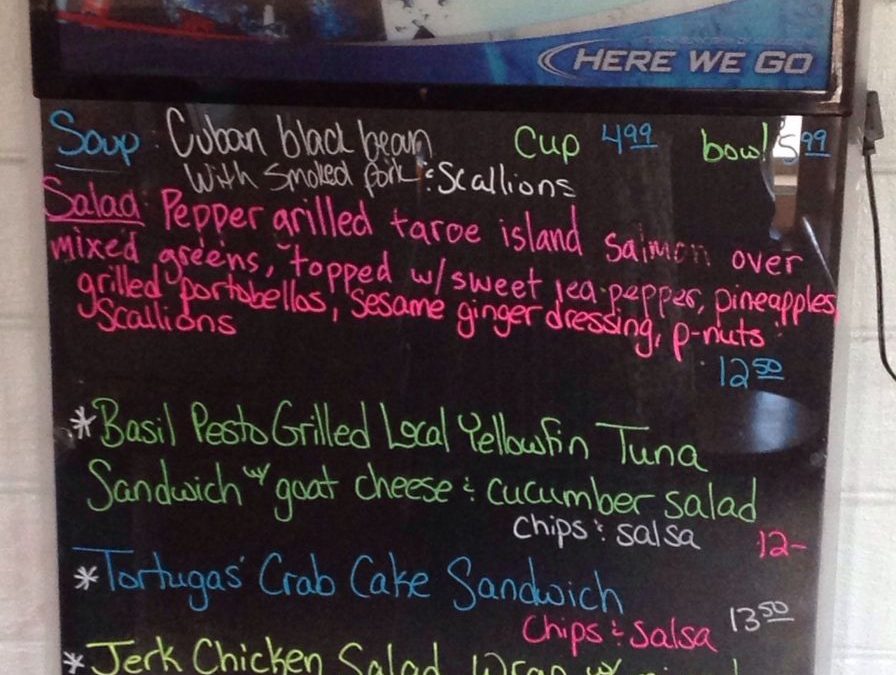 HERE WE GO
Soup: Cuban black bean Cup 4.99 bowl 5.99
With Smoked pork & Scallions
Salad: Pepper grilled taroe island Salmon over
mixed greens, topped w/ sweet red pepper, pineapples,
grilled portobellos, Sesame ginger dressing, p-nuts &
Scallions
12.50
*Basil Pesto Grilled Local Yellowfin Tuna
Sandwich w/ goat cheese & cucumber salad
chips & salsa 12-
*Tortugas' Crab Cake Sandwich
Chips & Salsa 13.50
*Jerk Chicken Salad Wrap w/